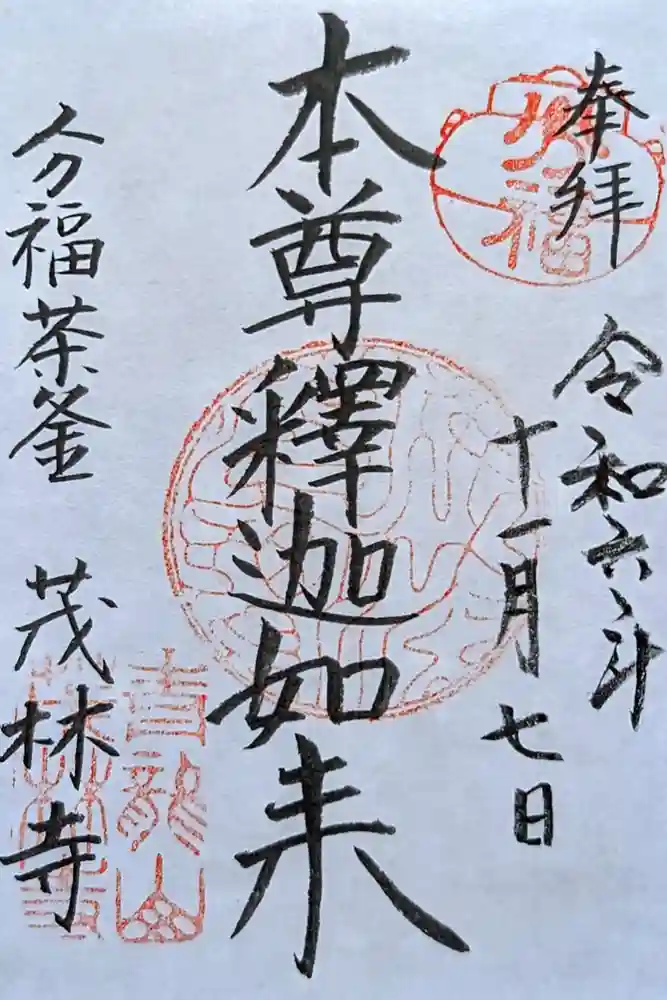 奉拝
令和六年
十一月七日
本尊釋迦如来
分福茶釜
茂林寺
分福
青龍山
茂林寺